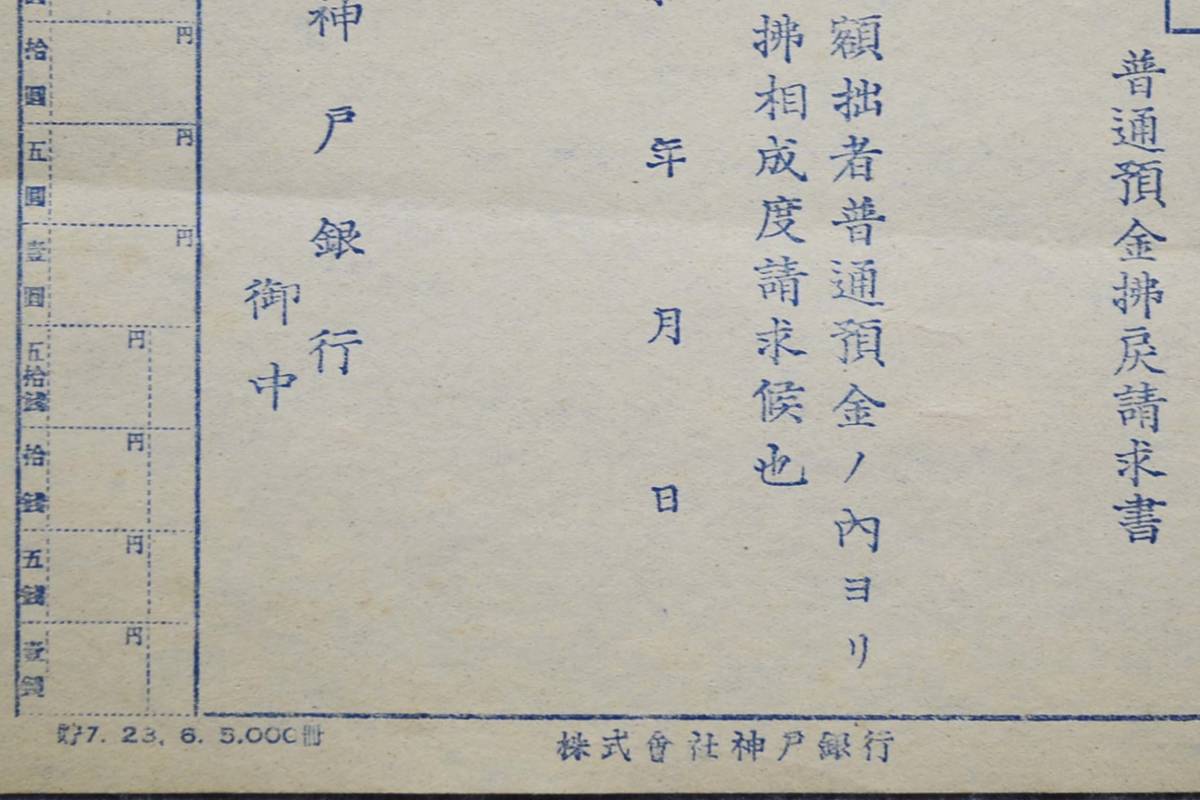 普通預金拂戻請求書
額拙者普通預金ノ內ヨリ
拂相成度請求候也
年 月 日
神戸銀行
御中
拾圓 円
五圓 円
壹圓 円
五拾錢 円
拾錢 円
五錢 円
壹錢 円
貯7. 23. 6. 5.000冊
株式會社神戸銀行